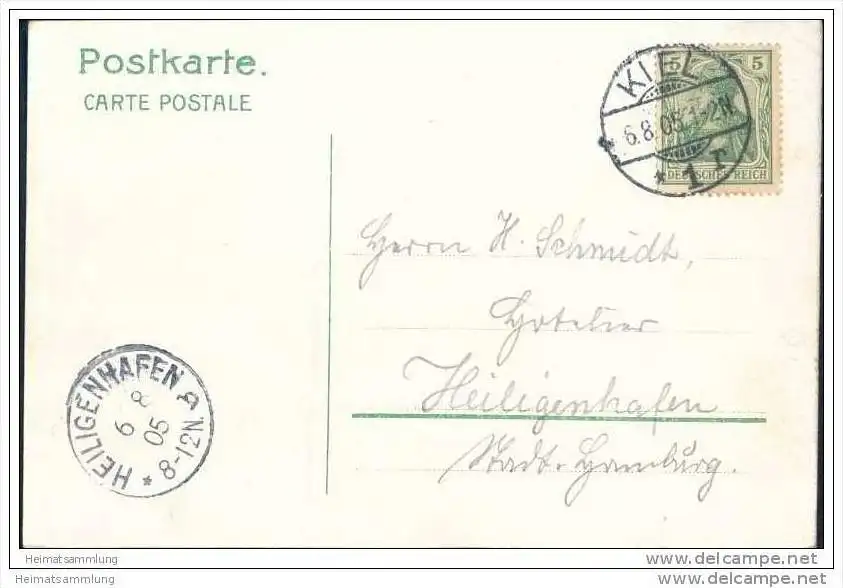 Postkarte.
CARTE POSTALE
5 5
KIEL
6.8.05.1-2N.
* 1 r
DEUTSCHES REICH
Herrn H. Schmidt,
Hotelier
Heiligenhafen
Stadt-Hamburg.
HEILIGENHAFEN
6 8 05
* 8-12N.
Heimatsammlung
Heimatsammlung
www.delcampe.net
www.delcampe.net